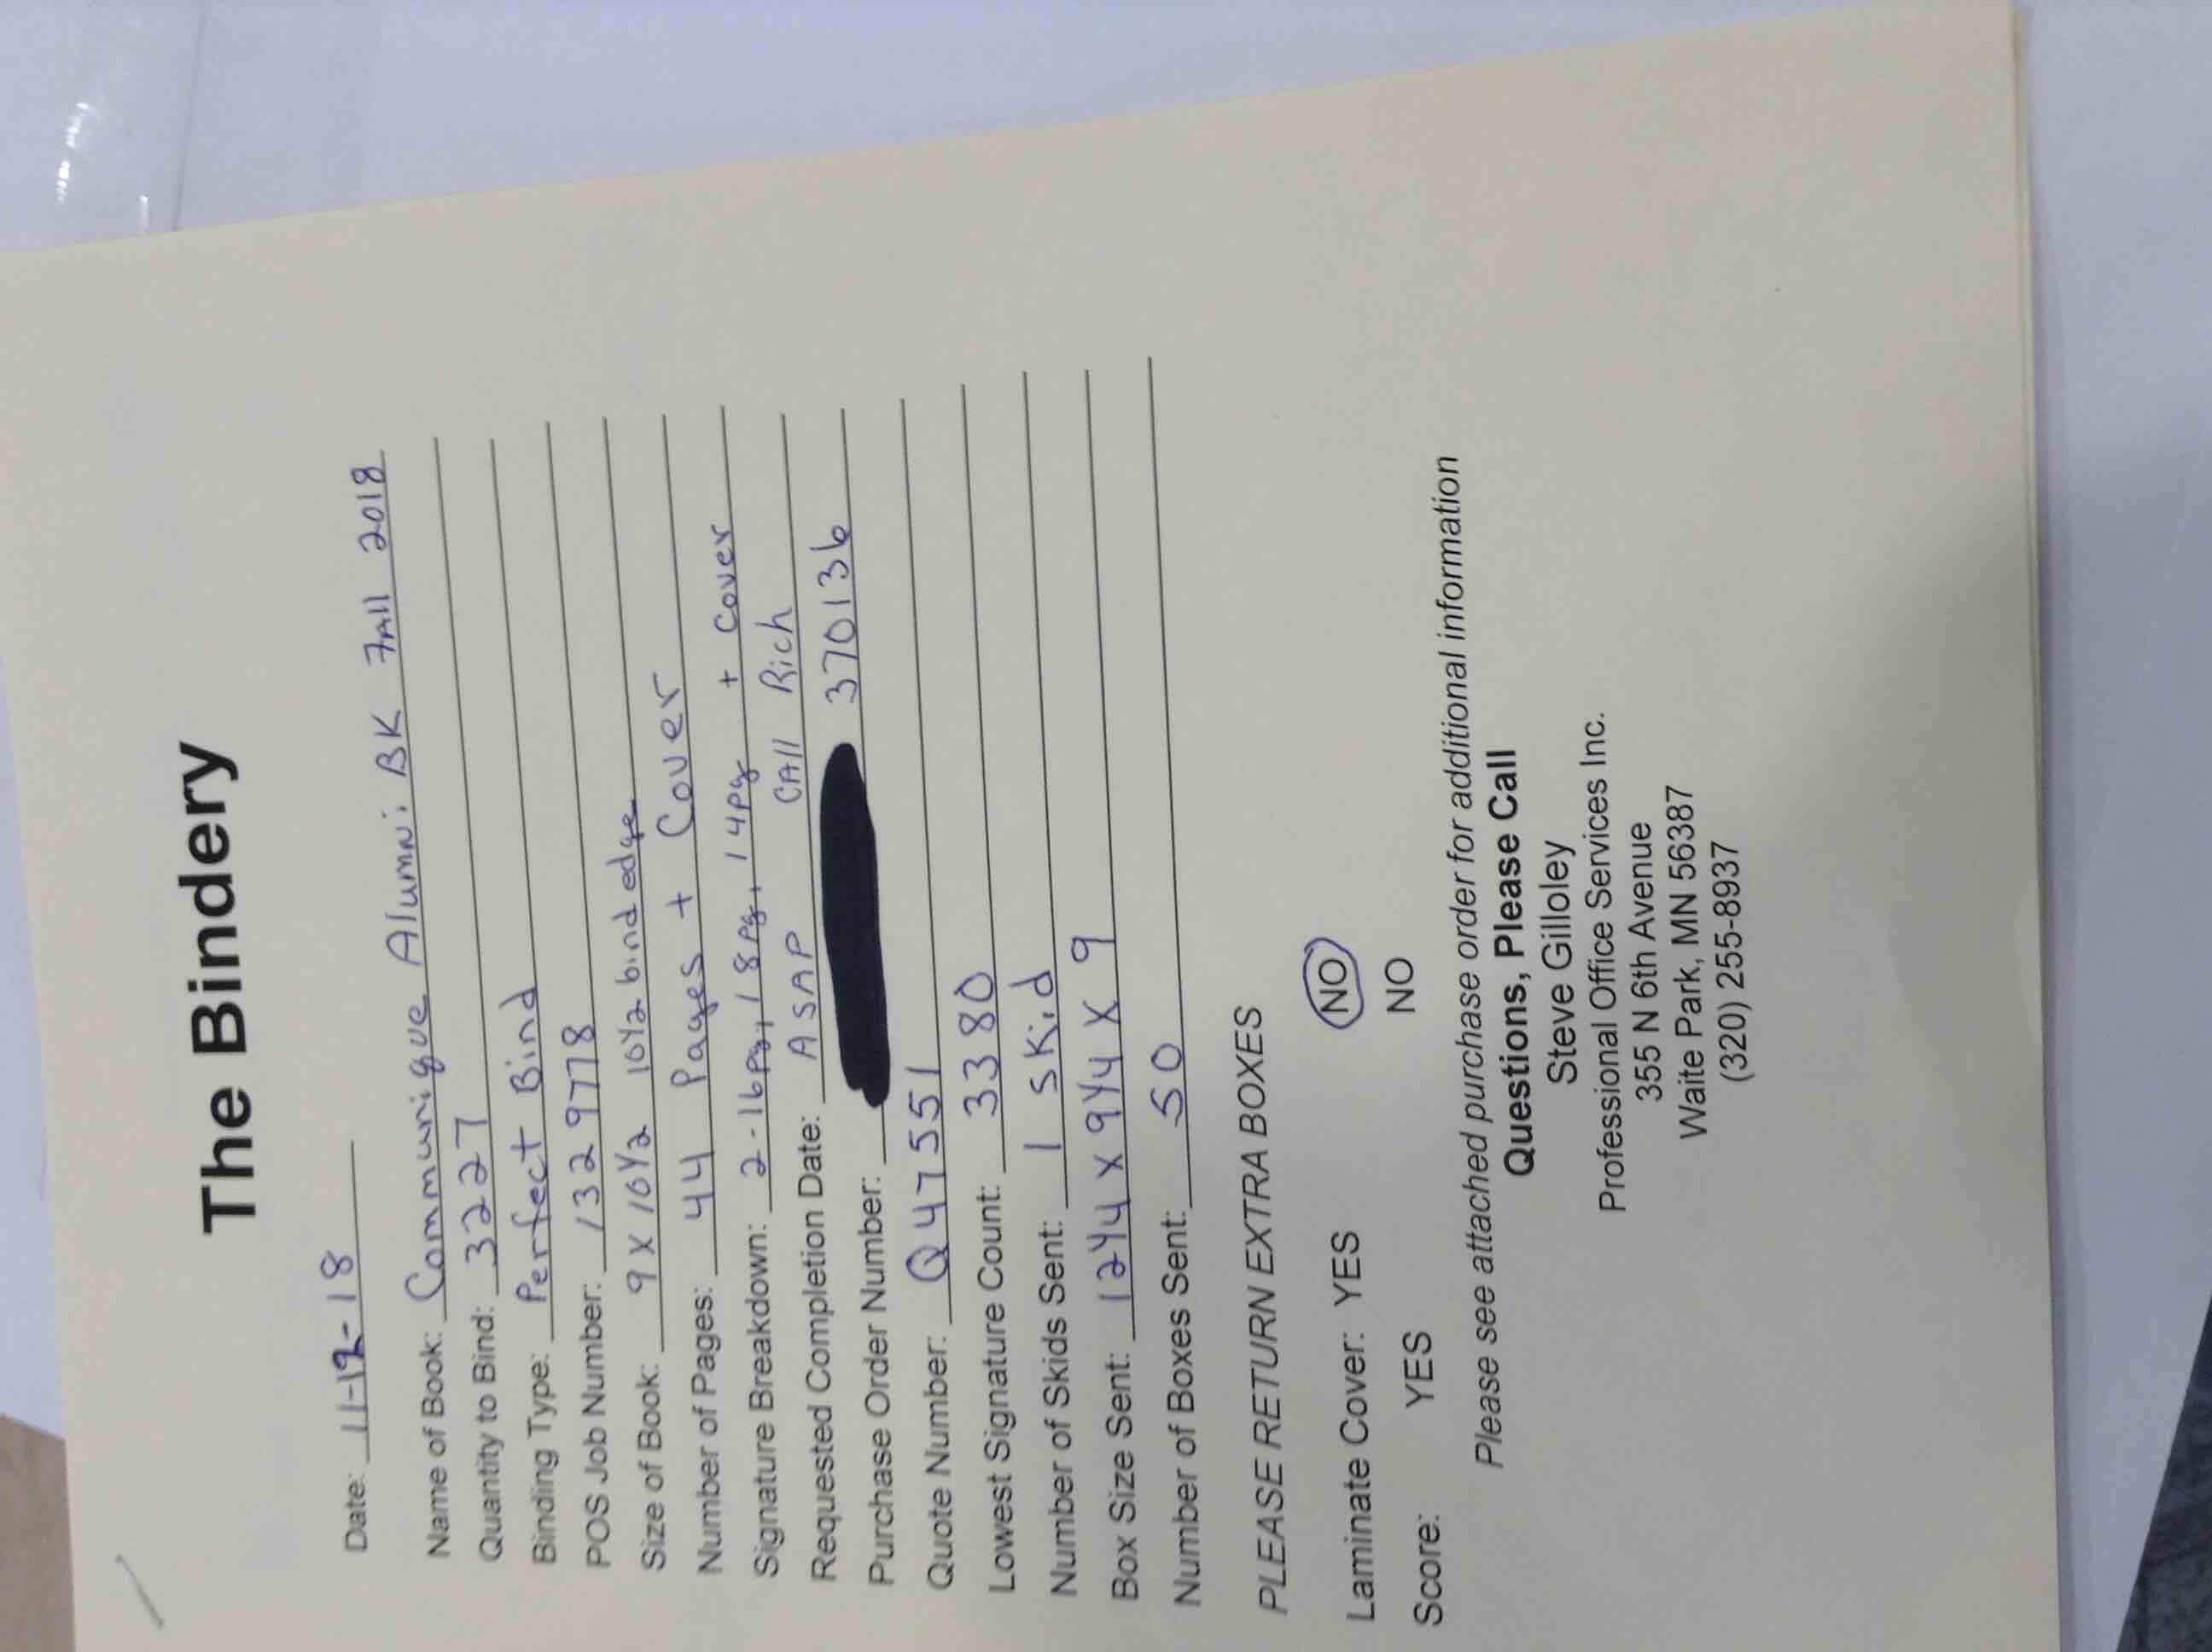 The Bindery
Date: 11-12-18
Name of Book: Communique Alumni BK Fall 2018
Quantity to Bind: 3227
Binding Type: Perfect Bind
POS Job Number: 1329778
Size of Book: 9 x 10 1/2 10 1/2 bind edge
Number of Pages: 44 Pages + Cover
Signature Breakdown: 2-16pg, 1 8pg, 1 4pg + Cover
Requested Completion Date: ASAP CAll Rich
Purchase Order Number: 370136
Quote Number: Q47551
Lowest Signature Count: 3380
Number of Skids Sent: 1 skid
Box Size Sent: 12 1/4 x 9 1/4 x 9
Number of Boxes Sent: 50
PLEASE RETURN EXTRA BOXES
Laminate Cover: YES NO
Score: YES NO
Please see attached purchase order for additional information
Questions, Please Call
Steve Gilloley
Professional Office Services Inc.
355 N 6th Avenue
Waite Park, MN 56387
(320) 255-8937